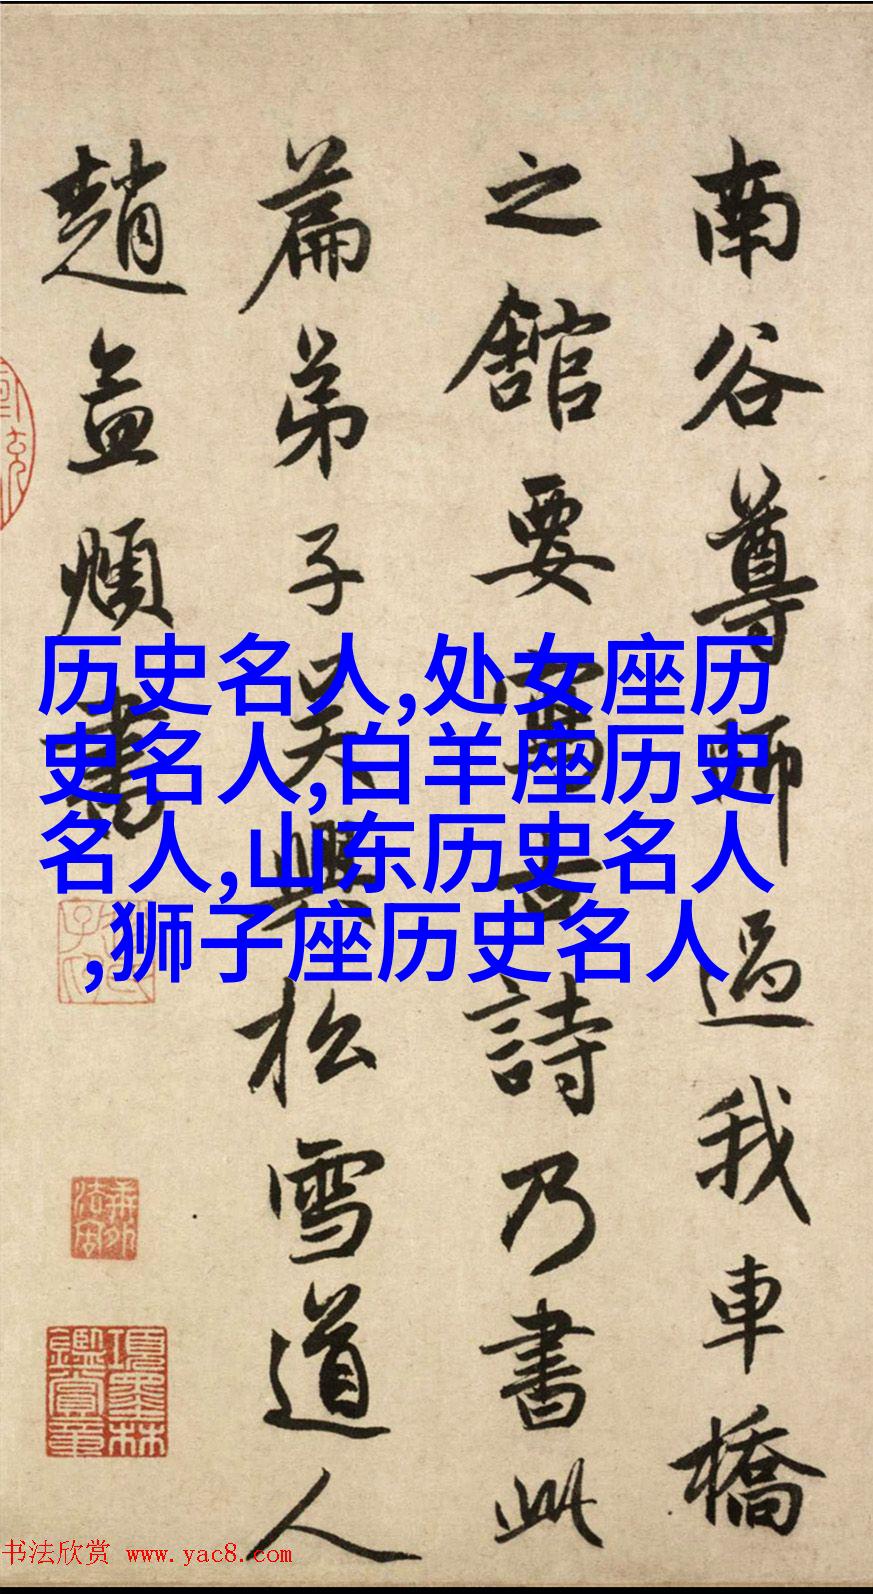 南谷尊師過我車橋
之館要寫古詩乃書此
篇弟子吴興松雪道人
趙孟頫書
历史名人,处女座历
史名人,白羊座历史
名人,山东历史名人
,狮子座历史名人
項墨林
鑑賞章
书法欣赏 www.yac8.com